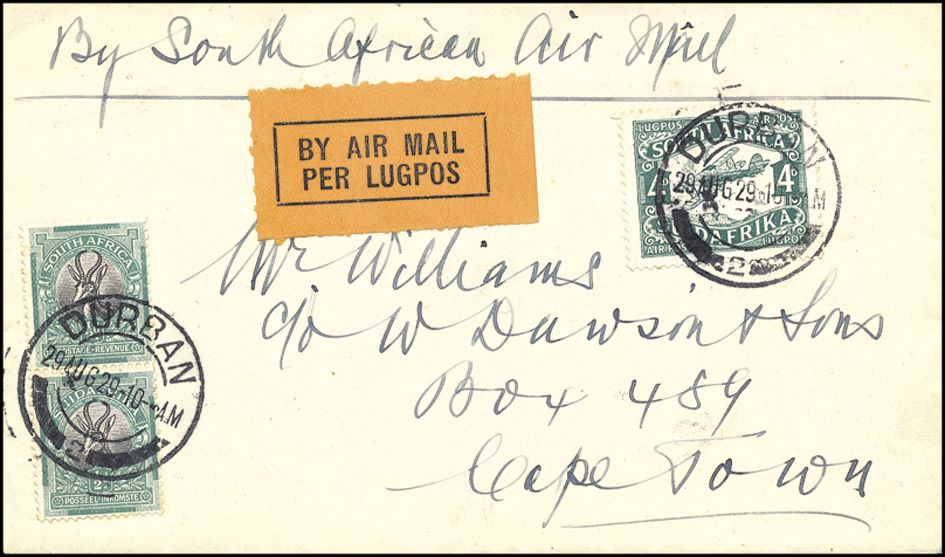 By South African Air Mail
BY AIR MAIL
PER LUGPOS
LUGPOS AIR POST
4D 4D
DAFRIKA
LUGPOS
DURBAN
29 AUG 29-10 AM
2
Mr Williams
c/o W Dawson & Sons
Box 489
Cape Town
SOUTH AFRICA
POSTAGE-REVENUE
DURBAN
29 AUG 29-10 AM
POSSEEL-INKOMSTE